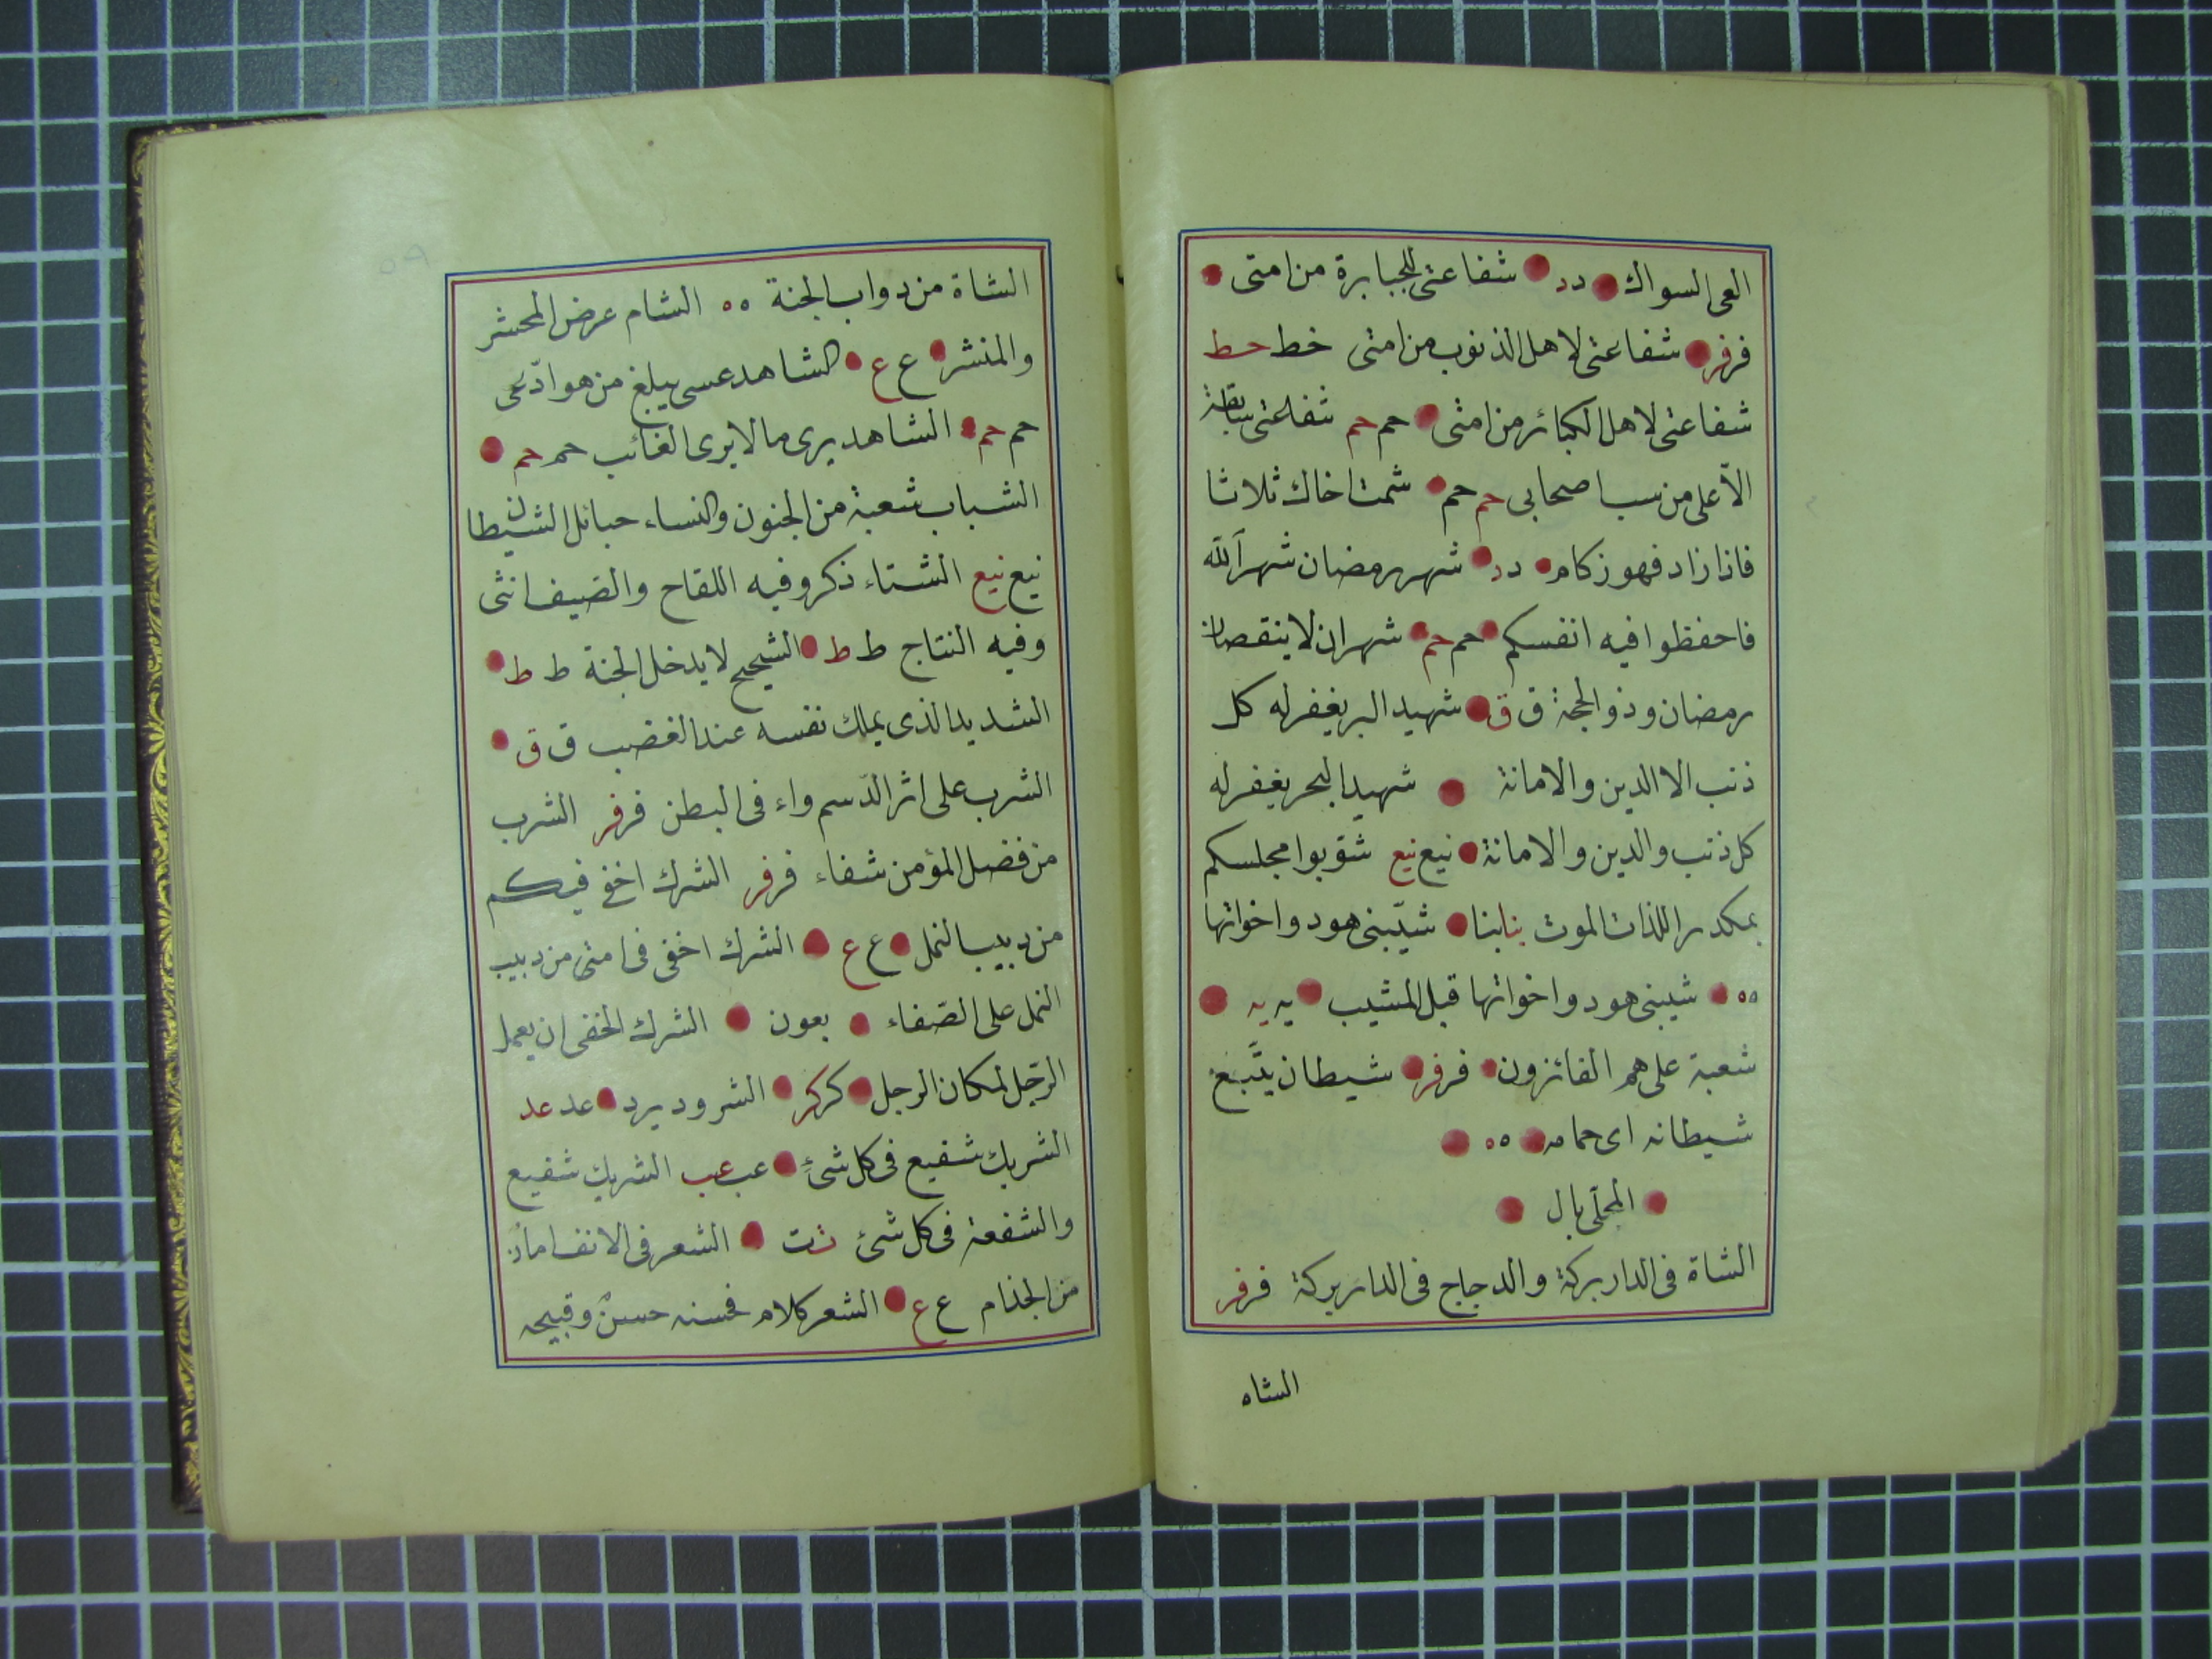 العى السواك دد شفاعتى للجبابرة من امتى
فرفر شفاعتى لاهل الذنوب من امتى خط خط
شفاعتى لاهل الكبائر من امتى حم حم شفاعتى
الّا على من سب اصحابى حم حم شمت اخاك ثلاثا
فاذا زاد فهو زكام دد شهر رمضان شهر الله
فاحفظوا فيه انفسكم حم حم شهران لا ينقصان
رمضان وذو الحجة ق ق شهيد البر يغفر له كل
ذنب الا الدين والامانة شهيد البحر يغفر له
كل ذنب والدين والامانة نيع نيع شوّبوا مجلسكم
بمكدر اللذات الموت بنا بنا شيّبنى هود واخواتها
ه‍ه‍ شيبنى هود واخواتها قبل المشيب يه يه
شعبة على هم الفائزون فرفر شيطان يتّبع
شيطانه اى حمامه ه‍ه‍
المحلّى بال
الشاة فى الدار بركة والدجاج فى الدار بركة فرفر
الشاه
الشاة من دواب الجنة ه‍ه‍ الشام عرض المحشر
والمنشر ع ع الشاهد عسى يبلغ من هو ادّعى
حم حم الشاهد يرى ما لا يرى الغائب حم حم
الشباب شعبة من الجنون والنساء حبائل الشيطان
نيع نيع الشتاء ذكر وفيه اللقاح والصيف انثى
وفيه النتاج ط ط الشحيح لا يدخل الجنة ط ط
الشديد الذى يملك نفسه عند الغضب ق ق
الشرب على اثر الدّسم واء فى البطن فرفر الشرب
من فضل المؤمن شفاء فرفر الشرك اخفى فيكم
من دبيب النمل ع ع الشرك اخفى فى امتى من دبيب
النمل على الصّفاء بعون الشرك الخفى ان يعمل
الرّجل لمكان الرجل كركر الشرود يرد عد عد
الشريك شفيع فى كل شئ عب عب الشريك شفيع
والشفعة فى كل شئ ت ت الشعر فى الانف امان
من الجذام ع ع الشعر كلام فحسنه حسنٌ وقبيحه